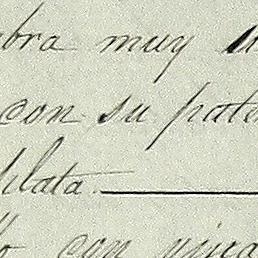 bra muy
con su pate
plata.
con